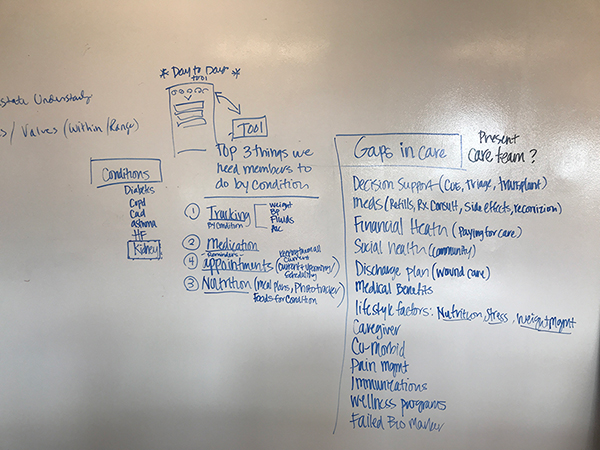 * Day to Day *
tool
TOOL
state Understandg
s / Values (Within/Range)
Top 3 things we
need members to
do by condition
Conditions
Diabetes
Copd
Cad
asthma
HF
Kidney
① Tracking
By Condition
Weight
BP
Fluids
A1c
② Medication
Reminders
④ appointments
Current & Upcoming
Scheduling
③ Nutrition (meal plans, Phototracker
Foods for Condition)
Gaps in care
Present
care team?
Decision Support (COE, Triage, transplant)
meds (Refills, RX Consult, Side effects,
Financial Health (Paying for care)
Social health (community)
Discharge plan (wound care)
Medical Benefits
lifestyle factors: Nutrition, Stress, Weight Mgmt
Caregiver
Co-morbid
Pain mgmt
Immunizations
Wellness programs
Failed Bio Marker